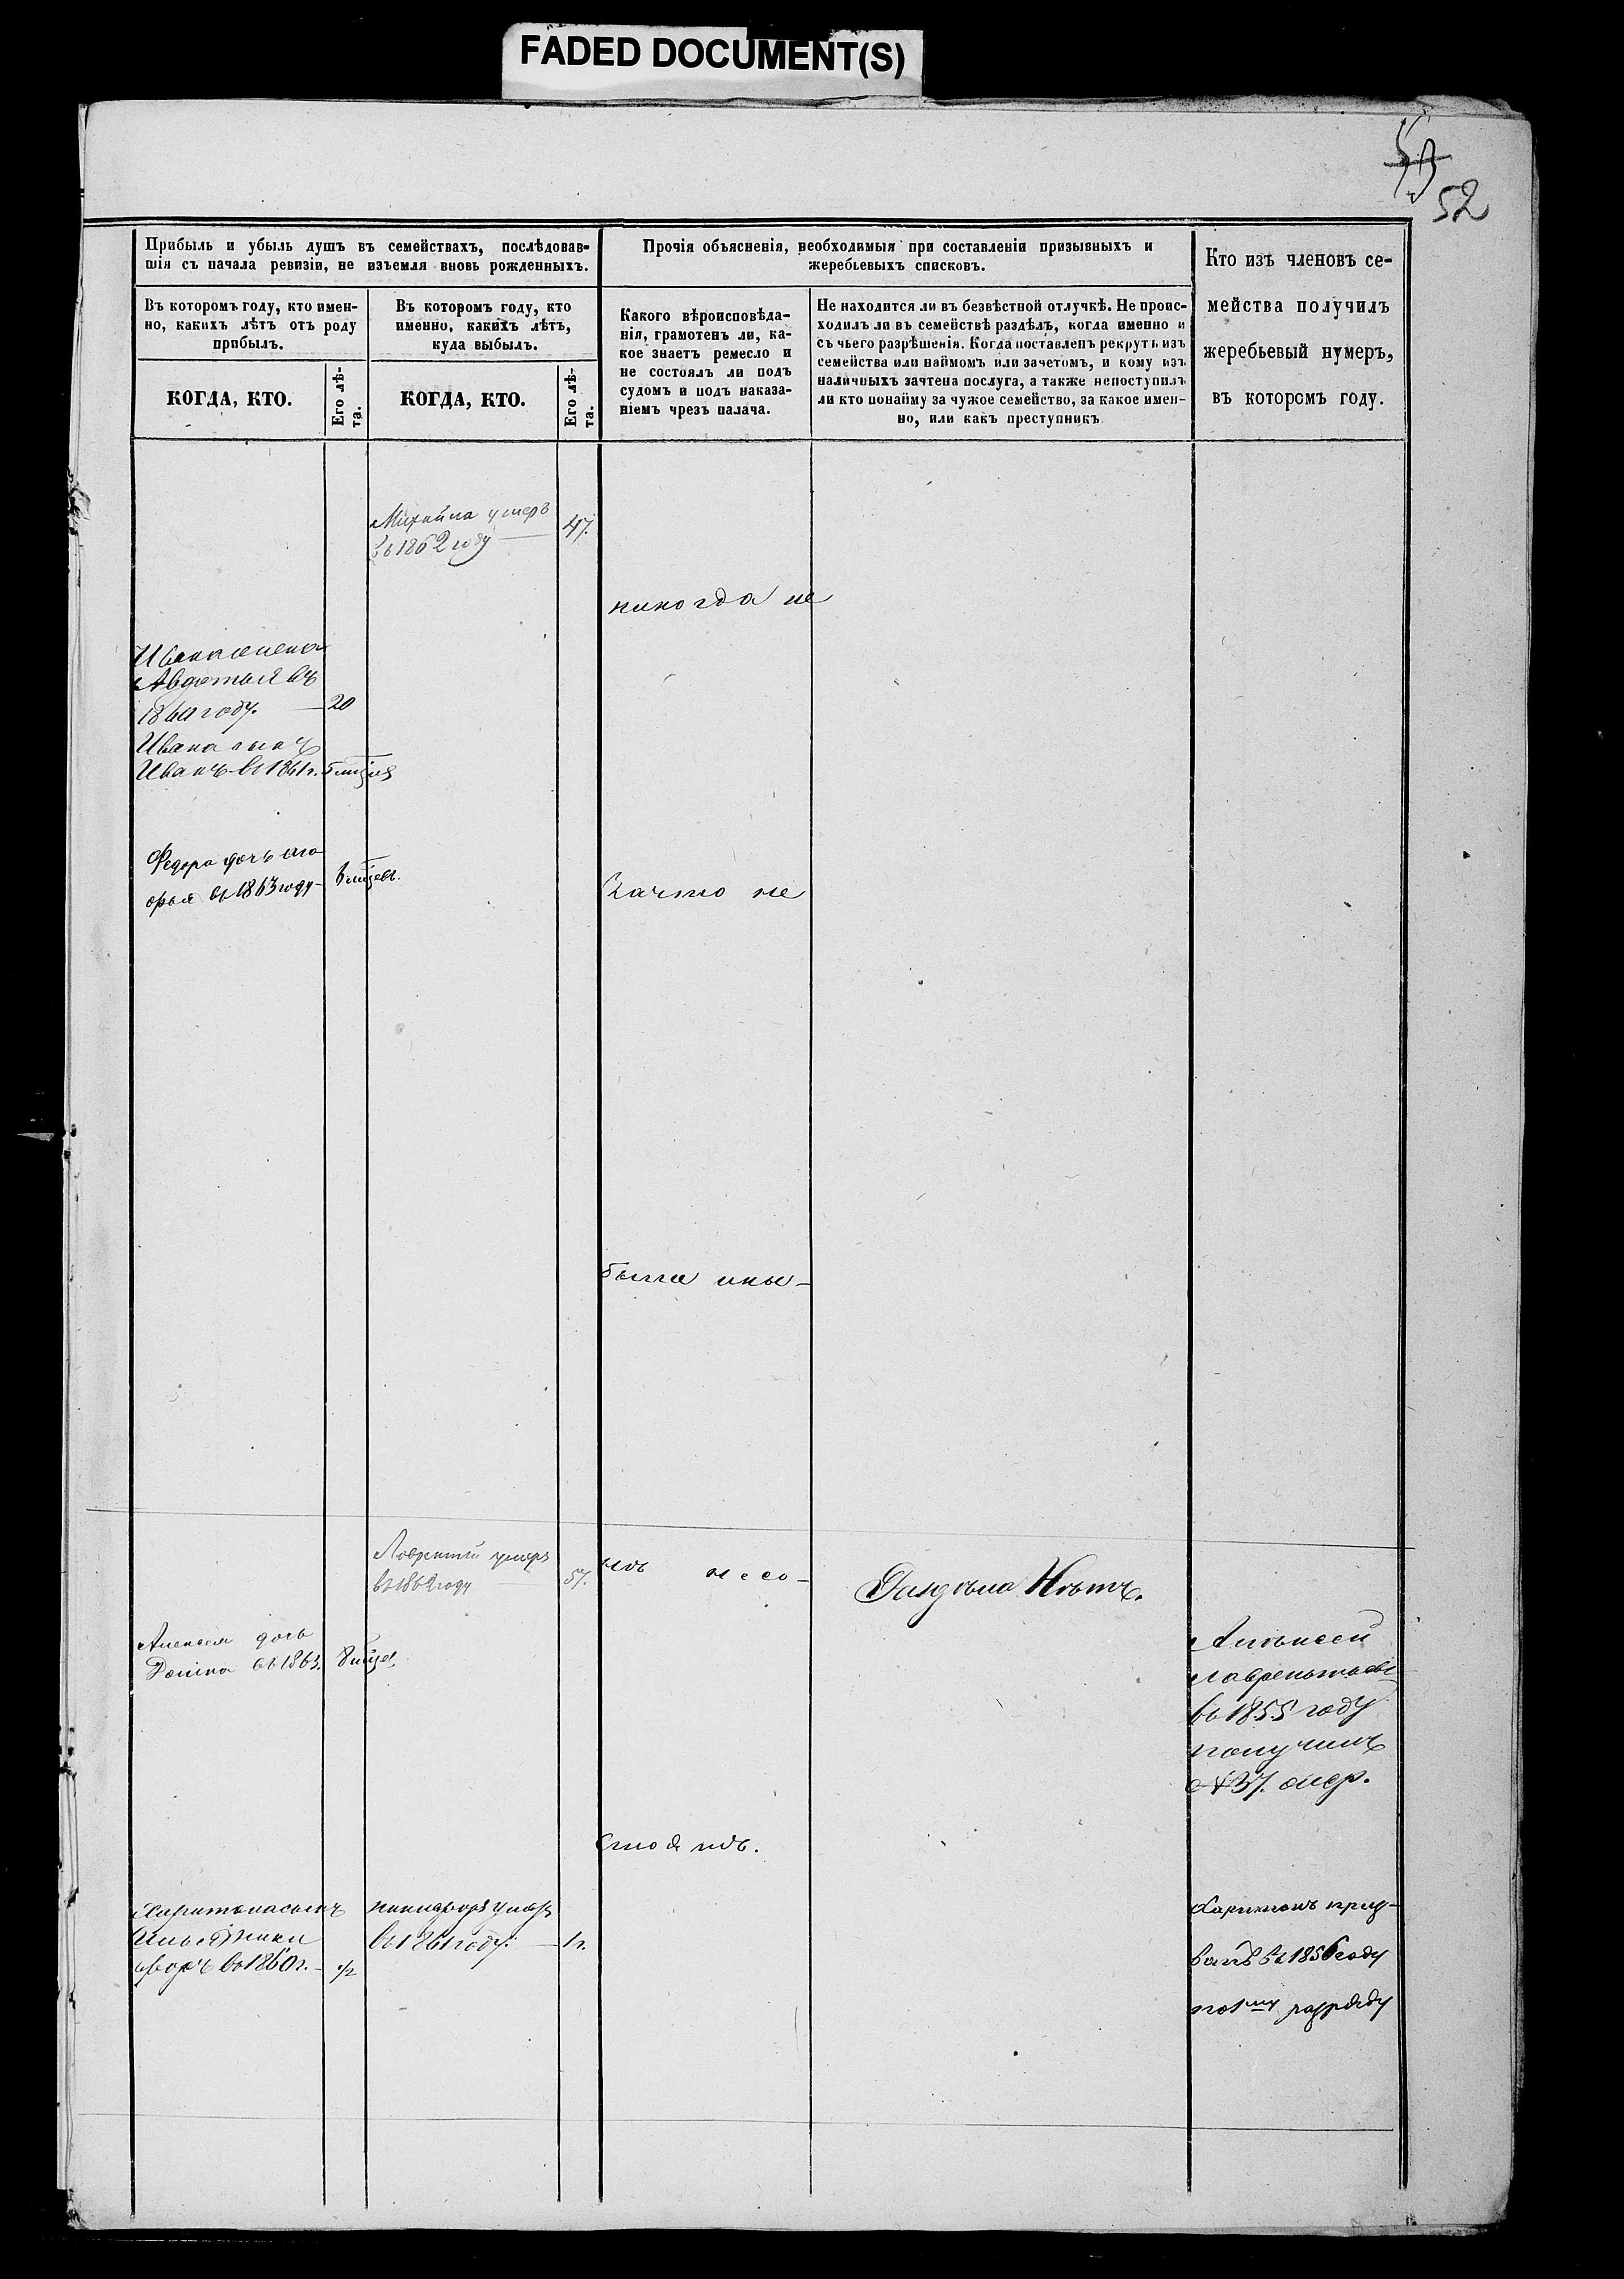 FADED DOCUMENT(S)
52
Прибыль и убыль душъ въ семействахъ, послѣдовав-
шія съ начала ревизіи, не изъемля вновь рожденныхъ.
Въ которомъ году, кто имен-
но, какихъ лѣтъ отъ роду
прибылъ.
КОГДА, КТО.
Его лѣ-
та.
Въ которомъ году, кто
именно, какихъ лѣтъ,
куда выбылъ.
КОГДА, КТО.
Его лѣ-
та.
Прочія объясненія, необходимыя при составленіи призывныхъ и
жеребьевыхъ списковъ.
Какого вѣроисповѣда-
нія, грамотенъ ли, ка-
кое знаетъ ремесло и
не состоялъ ли подъ
судомъ и подъ наказа-
ніемъ чрезъ палача.
Не находится ли въ безвѣстной отлучкѣ. Не проис-
ходилъ ли въ семействѣ раздѣлъ, когда именно и
съ чьего разрѣшенія. Когда поставленъ рекрутъ изъ
семейства или наймомъ или зачетомъ, и кому изъ
наличныхъ зачтена послуга, а также непоступилъ
ли кто понайму за чужое семейство, за какое имен-
но, или какъ преступникъ
Кто изъ членовъ се-
мейства получилъ
жеребьевый нумеръ,
въ которомъ году.
Михайла умеръ
въ 1862 году
47.
никогда не
Ивана жена
Авдотья въ
1860 году.
20
Ивана сынъ
Иванъ въ 1861 г.
Федора дочь
въ 1863 году
За что не
были ины-
Лаврентій умеръ
въ 1862 году
57.
не со-
Раздѣла Нѣтъ.
Алексея дочь
Домна въ 1863.
8 мѣсяц
Алексей
Лаврентьевъ
въ 1855 году
получилъ
№ 37.
стоятъ.
Харитона сынъ
Ники
форъ въ 1860 г.
Никифоръ умеръ
въ 1861 году.
1 г.
Харитонъ приз-
ванъ въ 1856 году
по 1му разряду